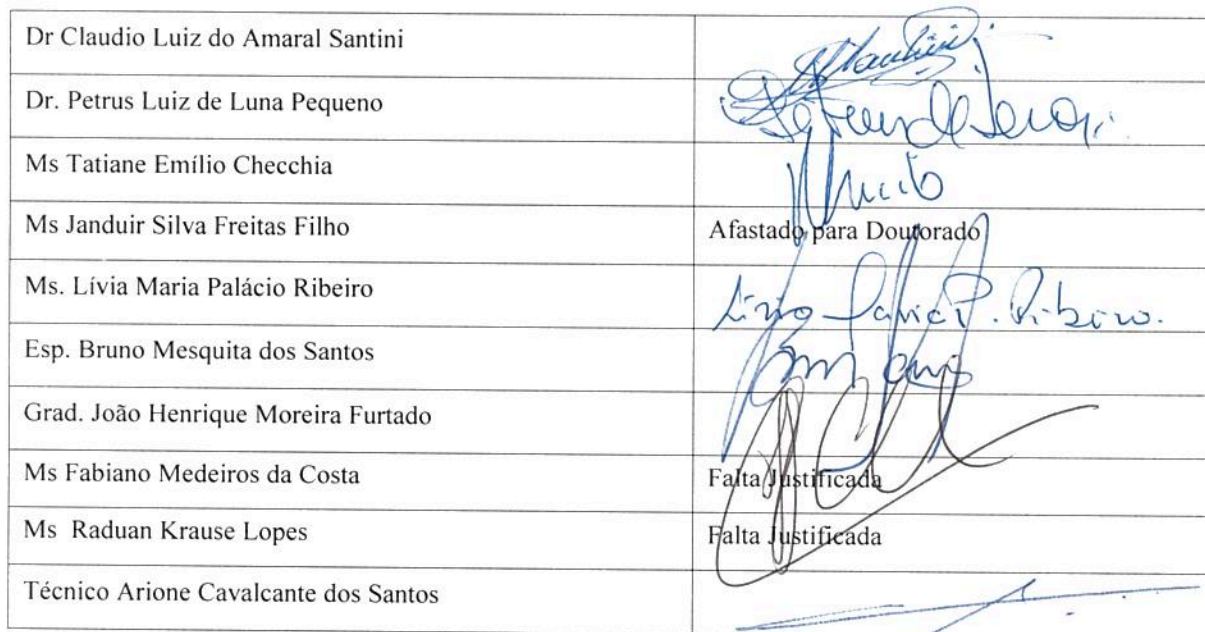 Dr Claudio Luiz do Amaral Santini
Dr. Petrus Luiz de Luna Pequeno
Ms Tatiane Emílio Checchia
Ms Janduir Silva Freitas Filho Afastado para Doutorado
Ms. Lívia Maria Palácio Ribeiro
Esp. Bruno Mesquita dos Santos
Grad. João Henrique Moreira Furtado
Ms Fabiano Medeiros da Costa Falta Justificada
Ms Raduan Krause Lopes Falta Justificada
Técnico Arione Cavalcante dos Santos